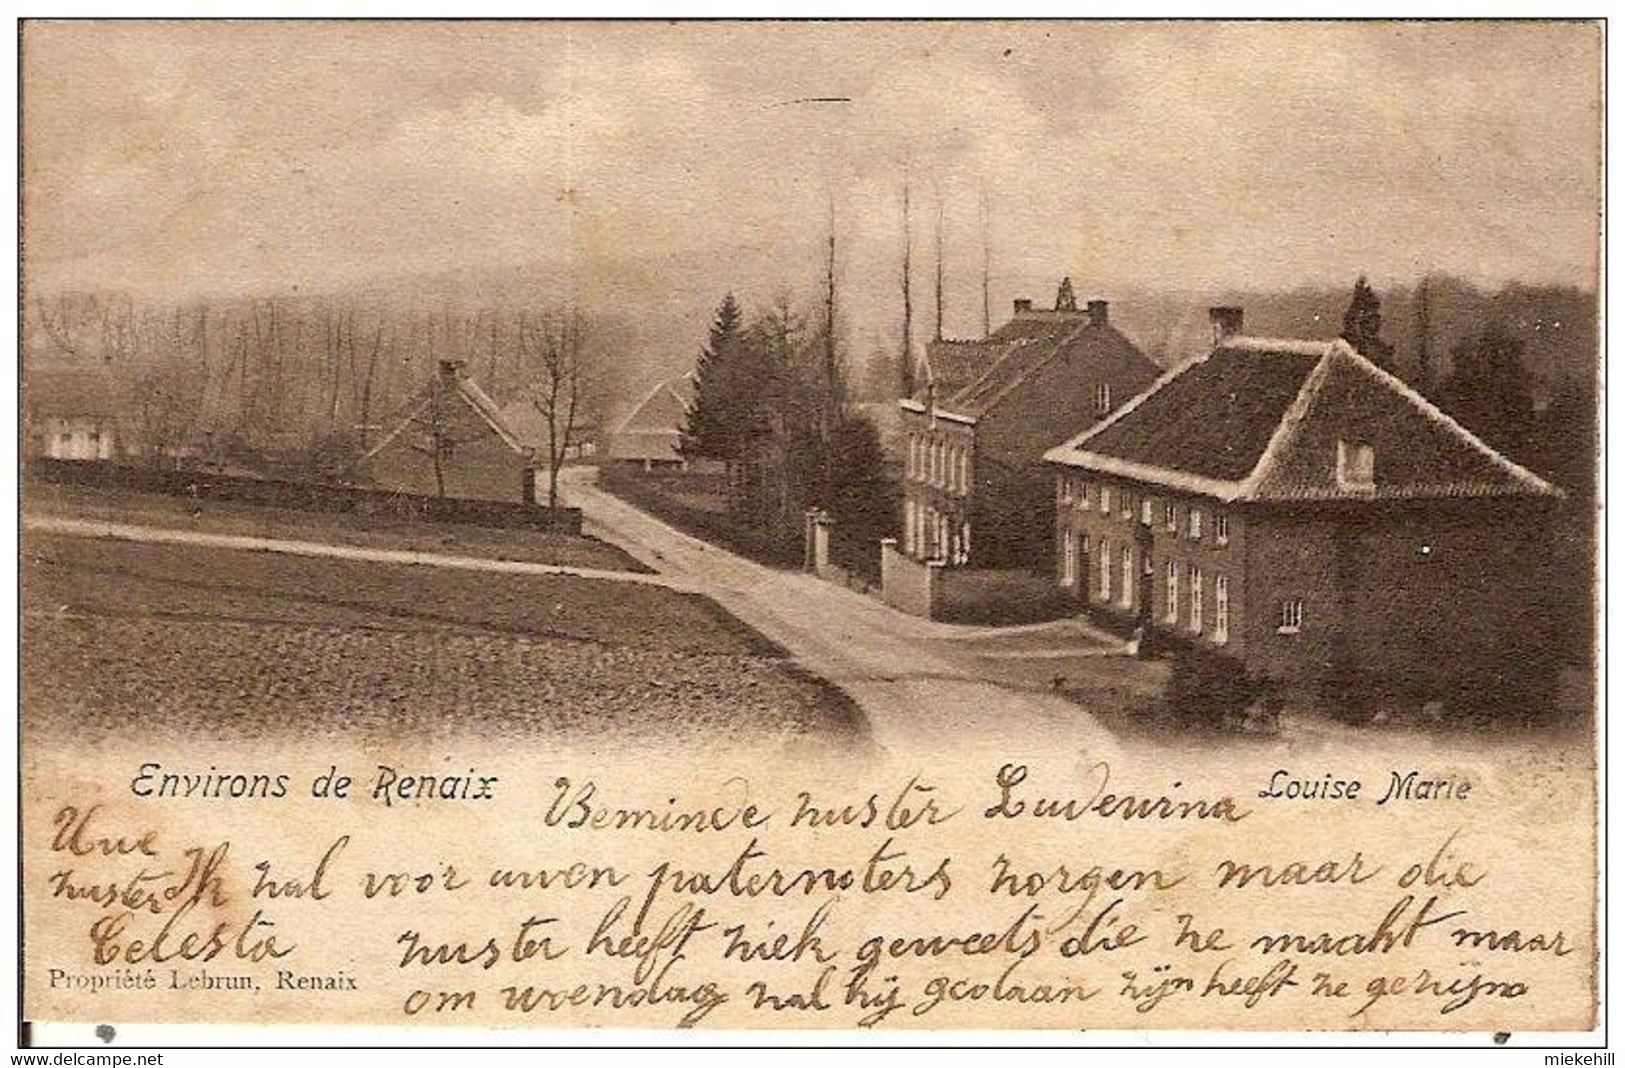 Environs de Renaix
Louise Marie
Beminde zuster Ludewina
Ik zal voor uwen paternoters zorgen maar die
zuster heeft ziek geweets die ze maakt maar
om woendag zal hij gedaan zijn heeft ze gezijnd
Uwe
zuster
Celesta
Propriété Lebrun, Renaix
miekehill
delcampe.net